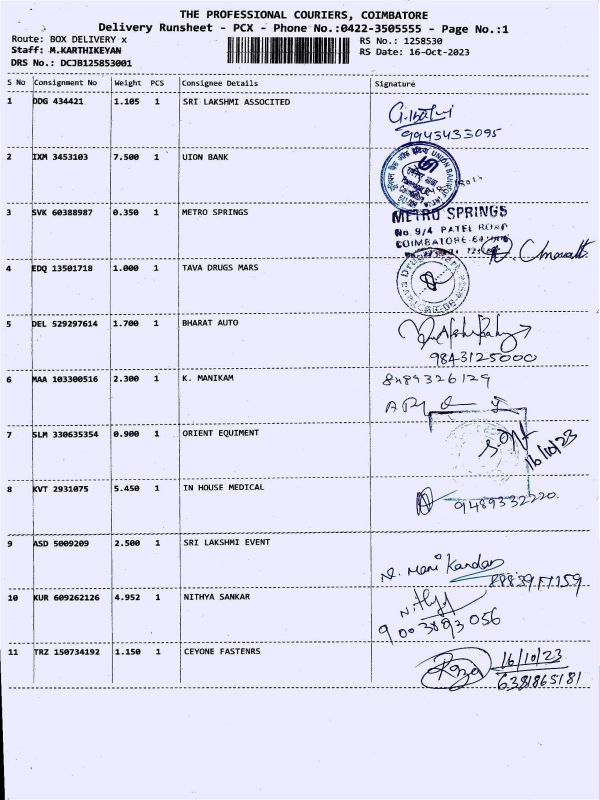 THE PROFESSIONAL COURIERS, COIMBATORE
Delivery Runsheet - PCX - Phone No.:0422-3505555 - Page No.:1
Route: BOX DELIVERY x RS No.: 1258530
Staff: M.KARTHIKEYAN RS Date: 16-Oct-2023
DRS No.: DCJB125853001
S No Consignment No Weight PCS Consignee Details Signature
1 DDG 434421 1.105 1 SRI LAKSHMI ASSOCITED
9943433095
2 IXM 3453103 7.500 1 UION BANK
UNION BANK
3 SVK 60388987 0.350 1 METRO SPRINGS
METRO SPRINGS
No. 9/4 PATEL ROAD
COIMBATORE
4 EDQ 13501718 1.000 1 TAVA DRUGS MARS
5 DEL 529297614 1.700 1 BHARAT AUTO
9843125000
6 MAA 103300516 2.300 1 K. MANIKAM
8489326129
7 SLM 330635354 0.900 1 ORIENT EQUIMENT
16/10/23
8 KVT 2931075 5.450 1 IN HOUSE MEDICAL
9489332220
9 ASD 5009209 2.500 1 SRI LAKSHMI EVENT
N. Mani Kandan
10 KUR 609262126 4.952 1 NITHYA SANKAR
9003893056
11 TRZ 150734192 1.150 1 CEYONE FASTENRS
16/10/23
6381865181